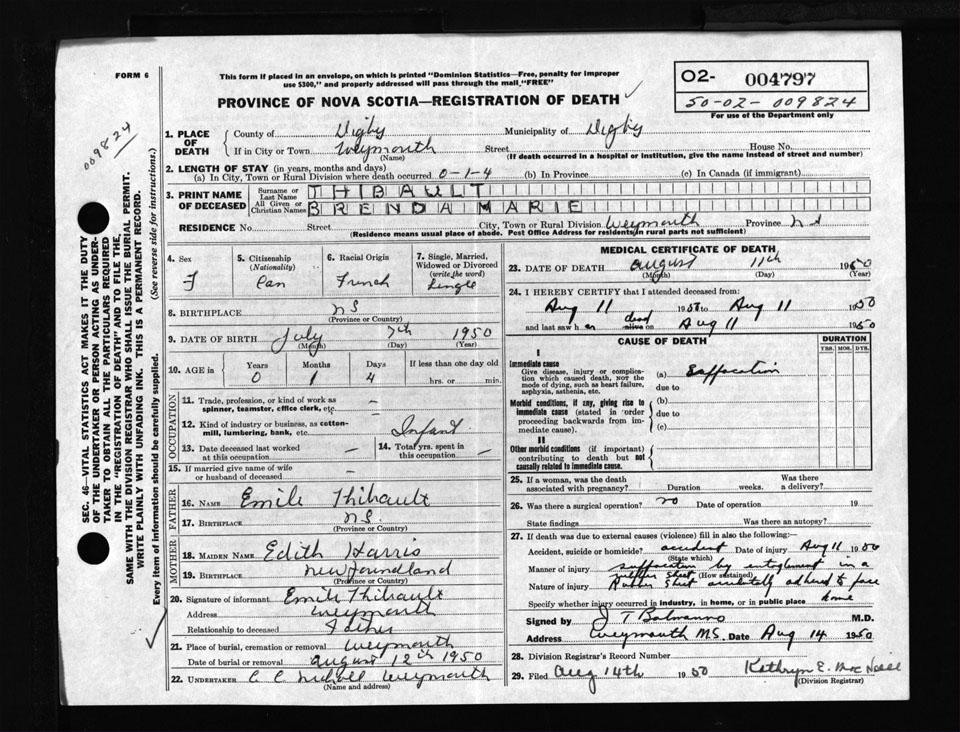 FORM 6
This form if placed in an envelope, on which is printed "Dominion Statistics—Free, penalty for improper
use $300," and properly addressed will pass through the mail "FREE"
O2- 004797
50-02-009824
For use of the Department only
PROVINCE OF NOVA SCOTIA—REGISTRATION OF DEATH
009824
1. PLACE OF DEATH { County of Digby Municipality of Digby
If in City or Town Weymouth Street House No.
(Name) (If death occurred in a hospital or institution, give the name instead of street and number)
2. LENGTH OF STAY (in years, months and days)
(a) In City, Town or Rural Division where death occurred 0-1-4 (b) In Province (c) In Canada (if immigrant)
3. PRINT NAME OF DECEASED { Surname or Last Name THIBAULT
All Given or Christian Names BRENDA MARIE
RESIDENCE No. Street City, Town or Rural Division Weymouth Province N S
(Residence means usual place of abode. Post Office Address for residents in rural parts not sufficient)
4. Sex F
5. Citizenship (Nationality) Can
6. Racial Origin French
7. Single, Married, Widowed or Divorced (write the word) Single
8. BIRTHPLACE N S
(Province or Country)
9. DATE OF BIRTH July 7th 1950
(Month) (Day) (Year)
10. AGE in { Years 0 Months 1 Days 4 If less than one day old
hrs. or min.
OCCUPATION
11. Trade, profession, or kind of work as spinner, teamster, office clerk, etc. —
12. Kind of industry or business, as cotton-mill, lumbering, bank, etc. Infant
13. Date deceased last worked at this occupation — 14. Total yrs. spent in this occupation —
15. If married give name of wife or husband of deceased —
FATHER
16. NAME Emile Thibault
17. BIRTHPLACE N.S.
(Province or Country)
MOTHER
18. MAIDEN NAME Edith Harris
19. BIRTHPLACE Newfoundland
(Province or Country)
20. Signature of informant Emile Thibault
Address Weymouth
Relationship to deceased Father
21. Place of burial, cremation or removal Weymouth
Date of burial or removal August 12th 1950
22. UNDERTAKER C C Weymouth
(Name and address)
MEDICAL CERTIFICATE OF DEATH
23. DATE OF DEATH August 11th 1950
(Month) (Day) (Year)
24. I HEREBY CERTIFY that I attended deceased from:
Aug 11 1950 to Aug 11 1950
and last saw h er dead alive on Aug 11 1950
CAUSE OF DEATH DURATION
YRS. MOS. DYS.
I
Immediate cause
Give disease, injury or complication which caused death, NOT the mode of dying, such as heart failure, asphyxia, asthenia, etc.
(a) Suffocation
due to
Morbid conditions, if any, giving rise to immediate cause (stated in order proceeding backwards from immediate cause).
(b)
due to
(c)
II
Other morbid conditions (if important) contributing to death but not causally related to immediate cause.
25. If a woman, was the death associated with pregnancy? Duration weeks. Was there a delivery?
26. Was there a surgical operation? no Date of operation 19
State findings Was there an autopsy?
27. If death was due to external causes (violence) fill in also the following:
Accident, suicide or homicide? accident Date of injury Aug 11 1950
(State which)
Manner of injury suffocation by in a
rubber sheet (How sustained)
Nature of injury Rubber sheet accidentally adhered to face
Specify whether injury occurred in industry, in home, or in public place home
Signed by J T Balmanno M.D.
Address Weymouth N.S. Date Aug 14 1950
28. Division Registrar's Record Number
29. Filed Aug 14th 1950 Kathryn E. MacNeill
(Division Registrar)
SEC. 46—VITAL STATISTICS ACT MAKES IT THE DUTY
OF THE UNDERTAKER OR PERSON ACTING AS UNDER-
TAKER TO OBTAIN ALL THE PARTICULARS REQUIRED
IN THE "REGISTRATION OF DEATH" AND TO FILE THE
SAME WITH THE DIVISION REGISTRAR WHO SHALL ISSUE THE BURIAL PERMIT.
WRITE PLAINLY WITH UNFADING INK. THIS IS A PERMANENT RECORD.
Every item of information should be carefully supplied. (See reverse side for instructions.)